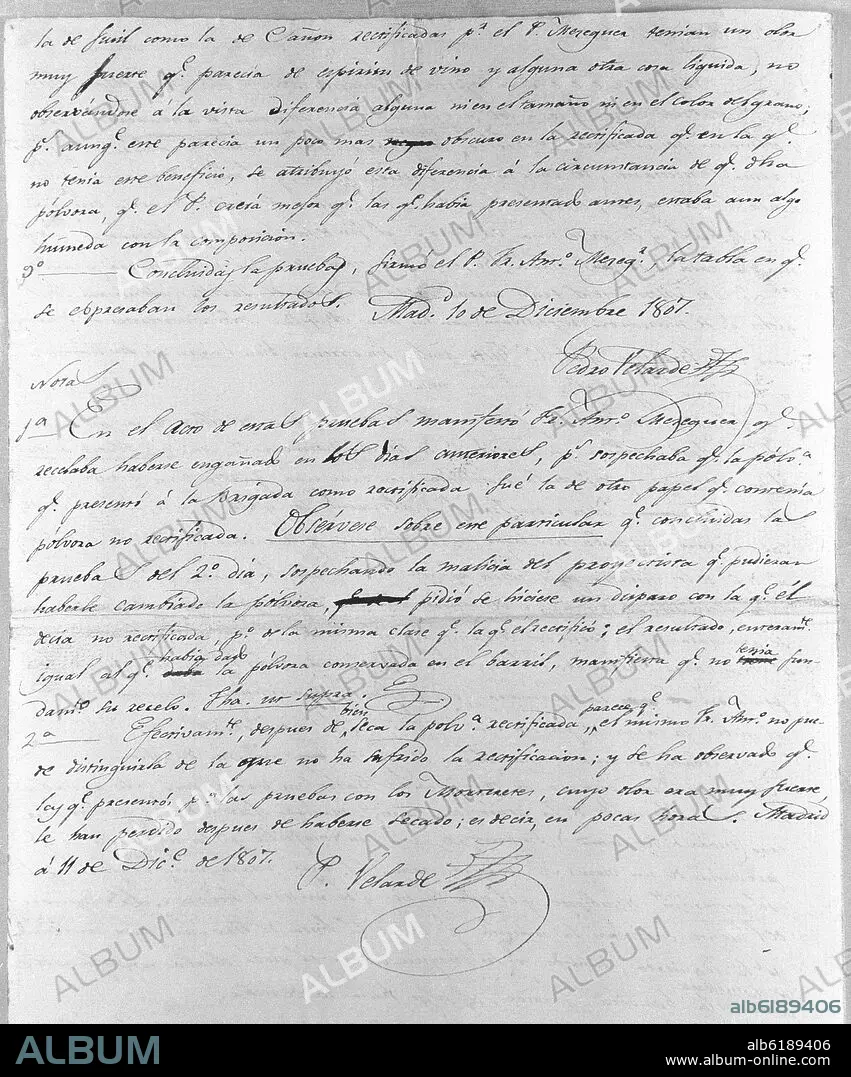 la de fusil como la de Cañon rectificadas pr. el P. Meseguer tenian un olor
muy fuerte q.e parecia de espiritu de vino y alguna otra cosa liquida, no
observandose á la vista diferencia alguna ni en el tamaño ni en el color del grano;
p.s aunq.e este parecia un poco mas obscuro en la rectificada q.e en la q.e
no tenia este beneficio, se atribuyó esta diferencia á la circunstancia de q.e dha
pólvora, q.e el P. creerá mejor q.e las q.e habia presentado antes, estaba aun algo
húmeda con la composicion.
9.o Concluidas las pruebas, firmó el P. Fr. Ant.o Meseg.r, la tabla en q.e
se expresaban los resultados. Mad.d 10 de Diciembre 1807.
Pedro Velarde
Notas
1.a En el acto de estas pruebas manifestó Fr. Ant.o Meseguer q.e
recelaba haberse engañado en los dias anteriores, p.s sospechaba q.e la pólv.a
q.e presentó á la Brigada como rectificada fué la de otro papel q.e contenia
pólvora no rectificada. Obsérvese sobre este particular q.e concluidas las
pruebas del 2.o dia, sospechando la malicia del proyectista q.e pudieran
haberle cambiado la pólvora, pidió se hiciese un disparo con la q.e él
decia no rectificada, p.o de la misma clase q.e la q.e el rectificó; el resultado, enteram.te
igual al q.e habia dado la pólvora conservada en el barril, manifiesta q.e no tenia fun-
dam.to su recelo. Fha. ut supra.
2.a Efectivam.te, despues de bien seca la polv.a rectificada, parece q.e el mismo Fr. Ant.o no pue-
de distinguirla de la que no ha sufrido la rectificacion; y se ha observado q.e
las q.e presentó p.a las pruebas con los Morteretes, cuyo olor era muy fuerte,
le han perdido despues de haberse secado; es decir, en pocas horas. Madrid
á 11 de Dic.e de 1807.
P. Velarde
ALBUM
alb6189406
ALBUM
alb6189406
www.album-online.com